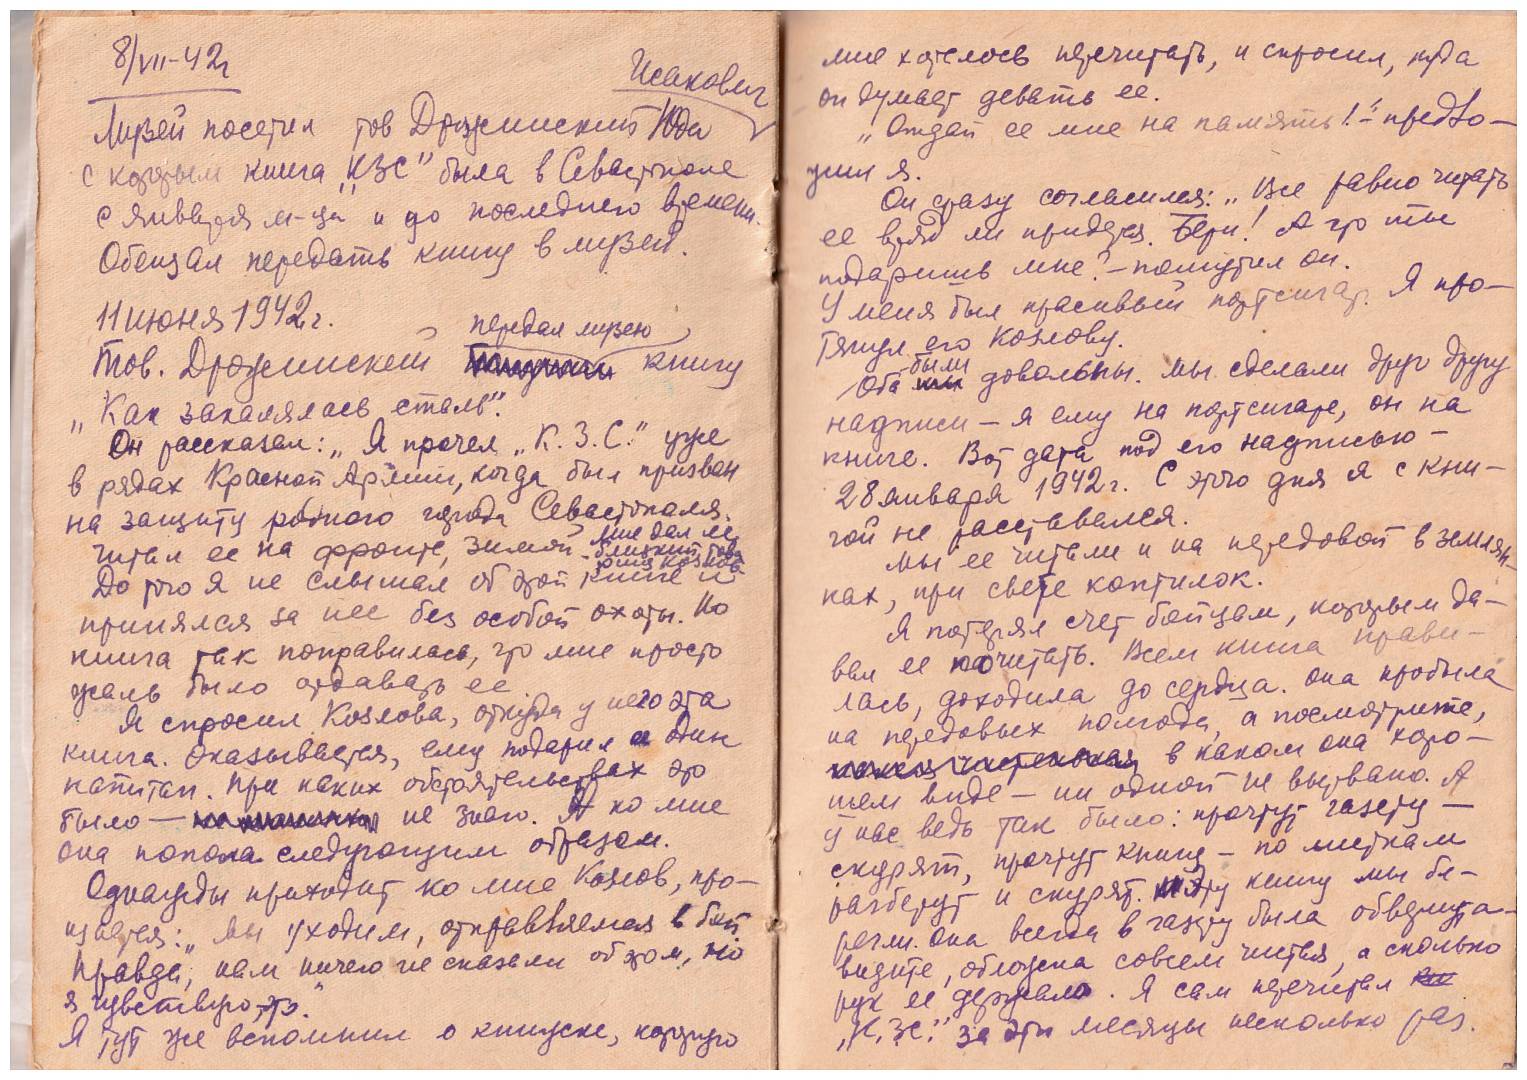 8/VII-42г
Исакович
Музей посетил тов Дружинский
с которым книга „КЗС" была в Севастополе
с января м-ца и до последнего времени.
Обещал передать книгу в музей.
11 июня 1942 г.
передал музею
Тов. Дружинский книгу
„Как закалялась сталь".
Он рассказал: „Я прочел „К.З.С." уже
в рядах Красной Армии, когда был призван
на защиту родного города Севастополя.
Читал ее на фронте, зимой. Мне дал ее
близкий товарищ Козлов
До того я не слышал об этой книге и
принялся за нее без особой охоты. Но
книга так понравилась, что мне просто
жаль было отдавать ее
Я спросил Козлова, откуда у него эта
книга. Оказывается, ему подарил ее один
капитан. При каких обстоятельствах это
было — не знаю. А ко мне
она попала следующим образом.
Однажды приходит ко мне Козлов, про-
щается: „Мы уходим, отправляемся в бой
Правда, нам ничего не сказали об этом, но
я чувствую это."
Я тут же вспомнил о книжке, которую
мне хотелось перечитать, и спросил, куда
он думает девать ее.
„Отдай ее мне на память!" – предло-
жил я.
Он сразу согласился: „Все равно читать
ее вряд ли придется. Бери! А что ты
подаришь мне? – пошутил он.
У меня был красивый портсигар. Я про-
тянул его Козлову.
Оба были довольны. Мы сделали друг другу
надписи – я ему на портсигаре, он на
книге. Вот дата под его надписью –
28 января 1942 г. С этого дня я с кни-
гой не расставался.
Мы ее читали и на передовой в землян-
ках, при свете коптилок.
Я потерял счет бойцам, которым да-
вал ее почитать. Всем книга нрави-
лась, доходила до сердца. Она пробыла
на передовых полгода, а посмотрите,
в каком она хоро-
шем виде – ни одной не вырвано. А
у нас ведь так было: прочтут газету –
скурят, прочтут книгу – по листкам
разберут и скурят. Эту книгу мы бе-
регли. Она всегда в газету была обвернута –
видите, обложка совсем чистая, а сколько
рук ее держало. Я сам перечитал
„К.З.С." за эти месяцы несколько раз.